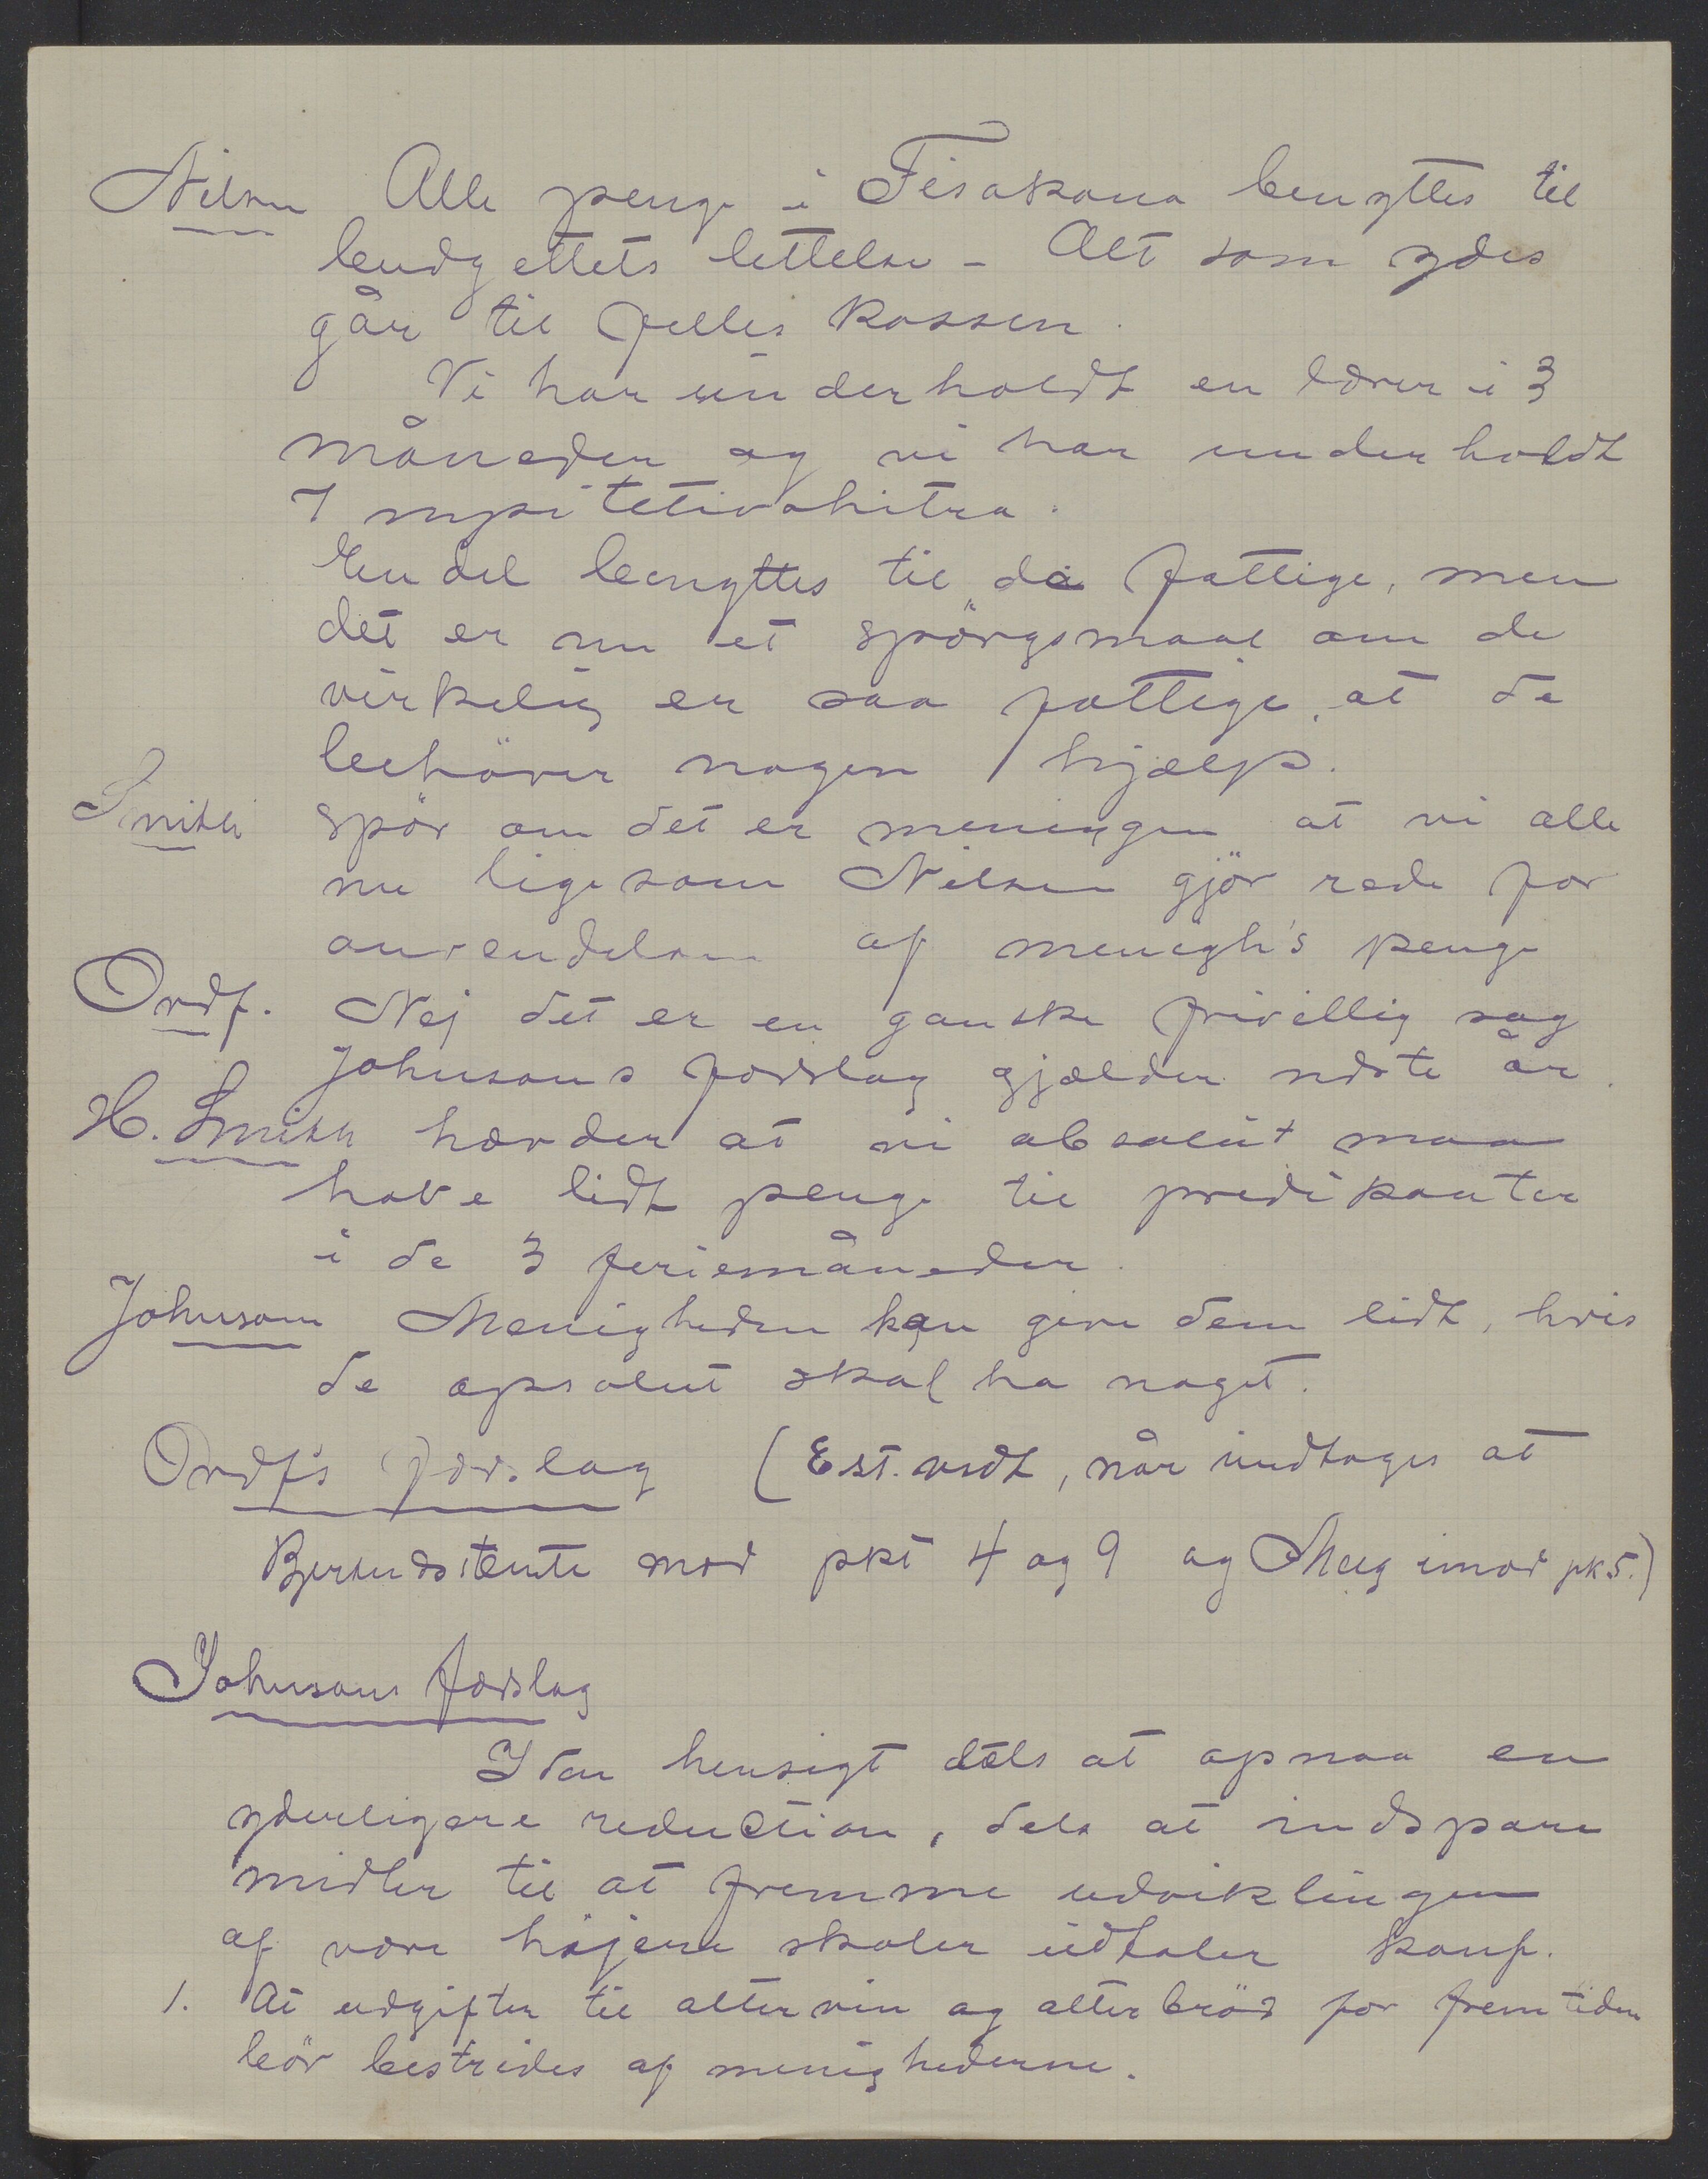 Nilsen Alle penge i Fisakana benyttes til
budgettets lettelse - Alt som ydes
går til felles kassen.
Vi har underholdt en lærer i 3
måneder og vi har underholdt
7 mpitetivohitra.
En del benyttes til de fattige, men
det er nu et spörgsmaal om de
virkelig er saa fattige, at de
behöver nogen hjælp.
Smith spör om det er meningen at vi alle
nu ligesom Nilsen gjör rede for
anvendelsen af menigh's penge
Ordf. Nej det er en ganske frivillig sag
Johnsons forslag gjælder næste år.
H. Smith hævder at vi absolut maa
have lidt penge til predikanter
i de 3 feriemåneder.
Johnson Menigheden kan give dem lidt, hvis
de apsolut skal ha noget.
Ordf's forslag (Est. vedt, når undtages at
stemte mod pkt 4 og 9 og Meeg imod pk 5.)
Johnsons forslag
I den hensigt dels at opnaa en
yderligere reduction, dels at indspare
midler til at fremme udviklingen
af vore höjere skoler udtaler konf.
1. At udgifter til altervin og alterbröd for fremtiden
bör bestrides af menighederne.